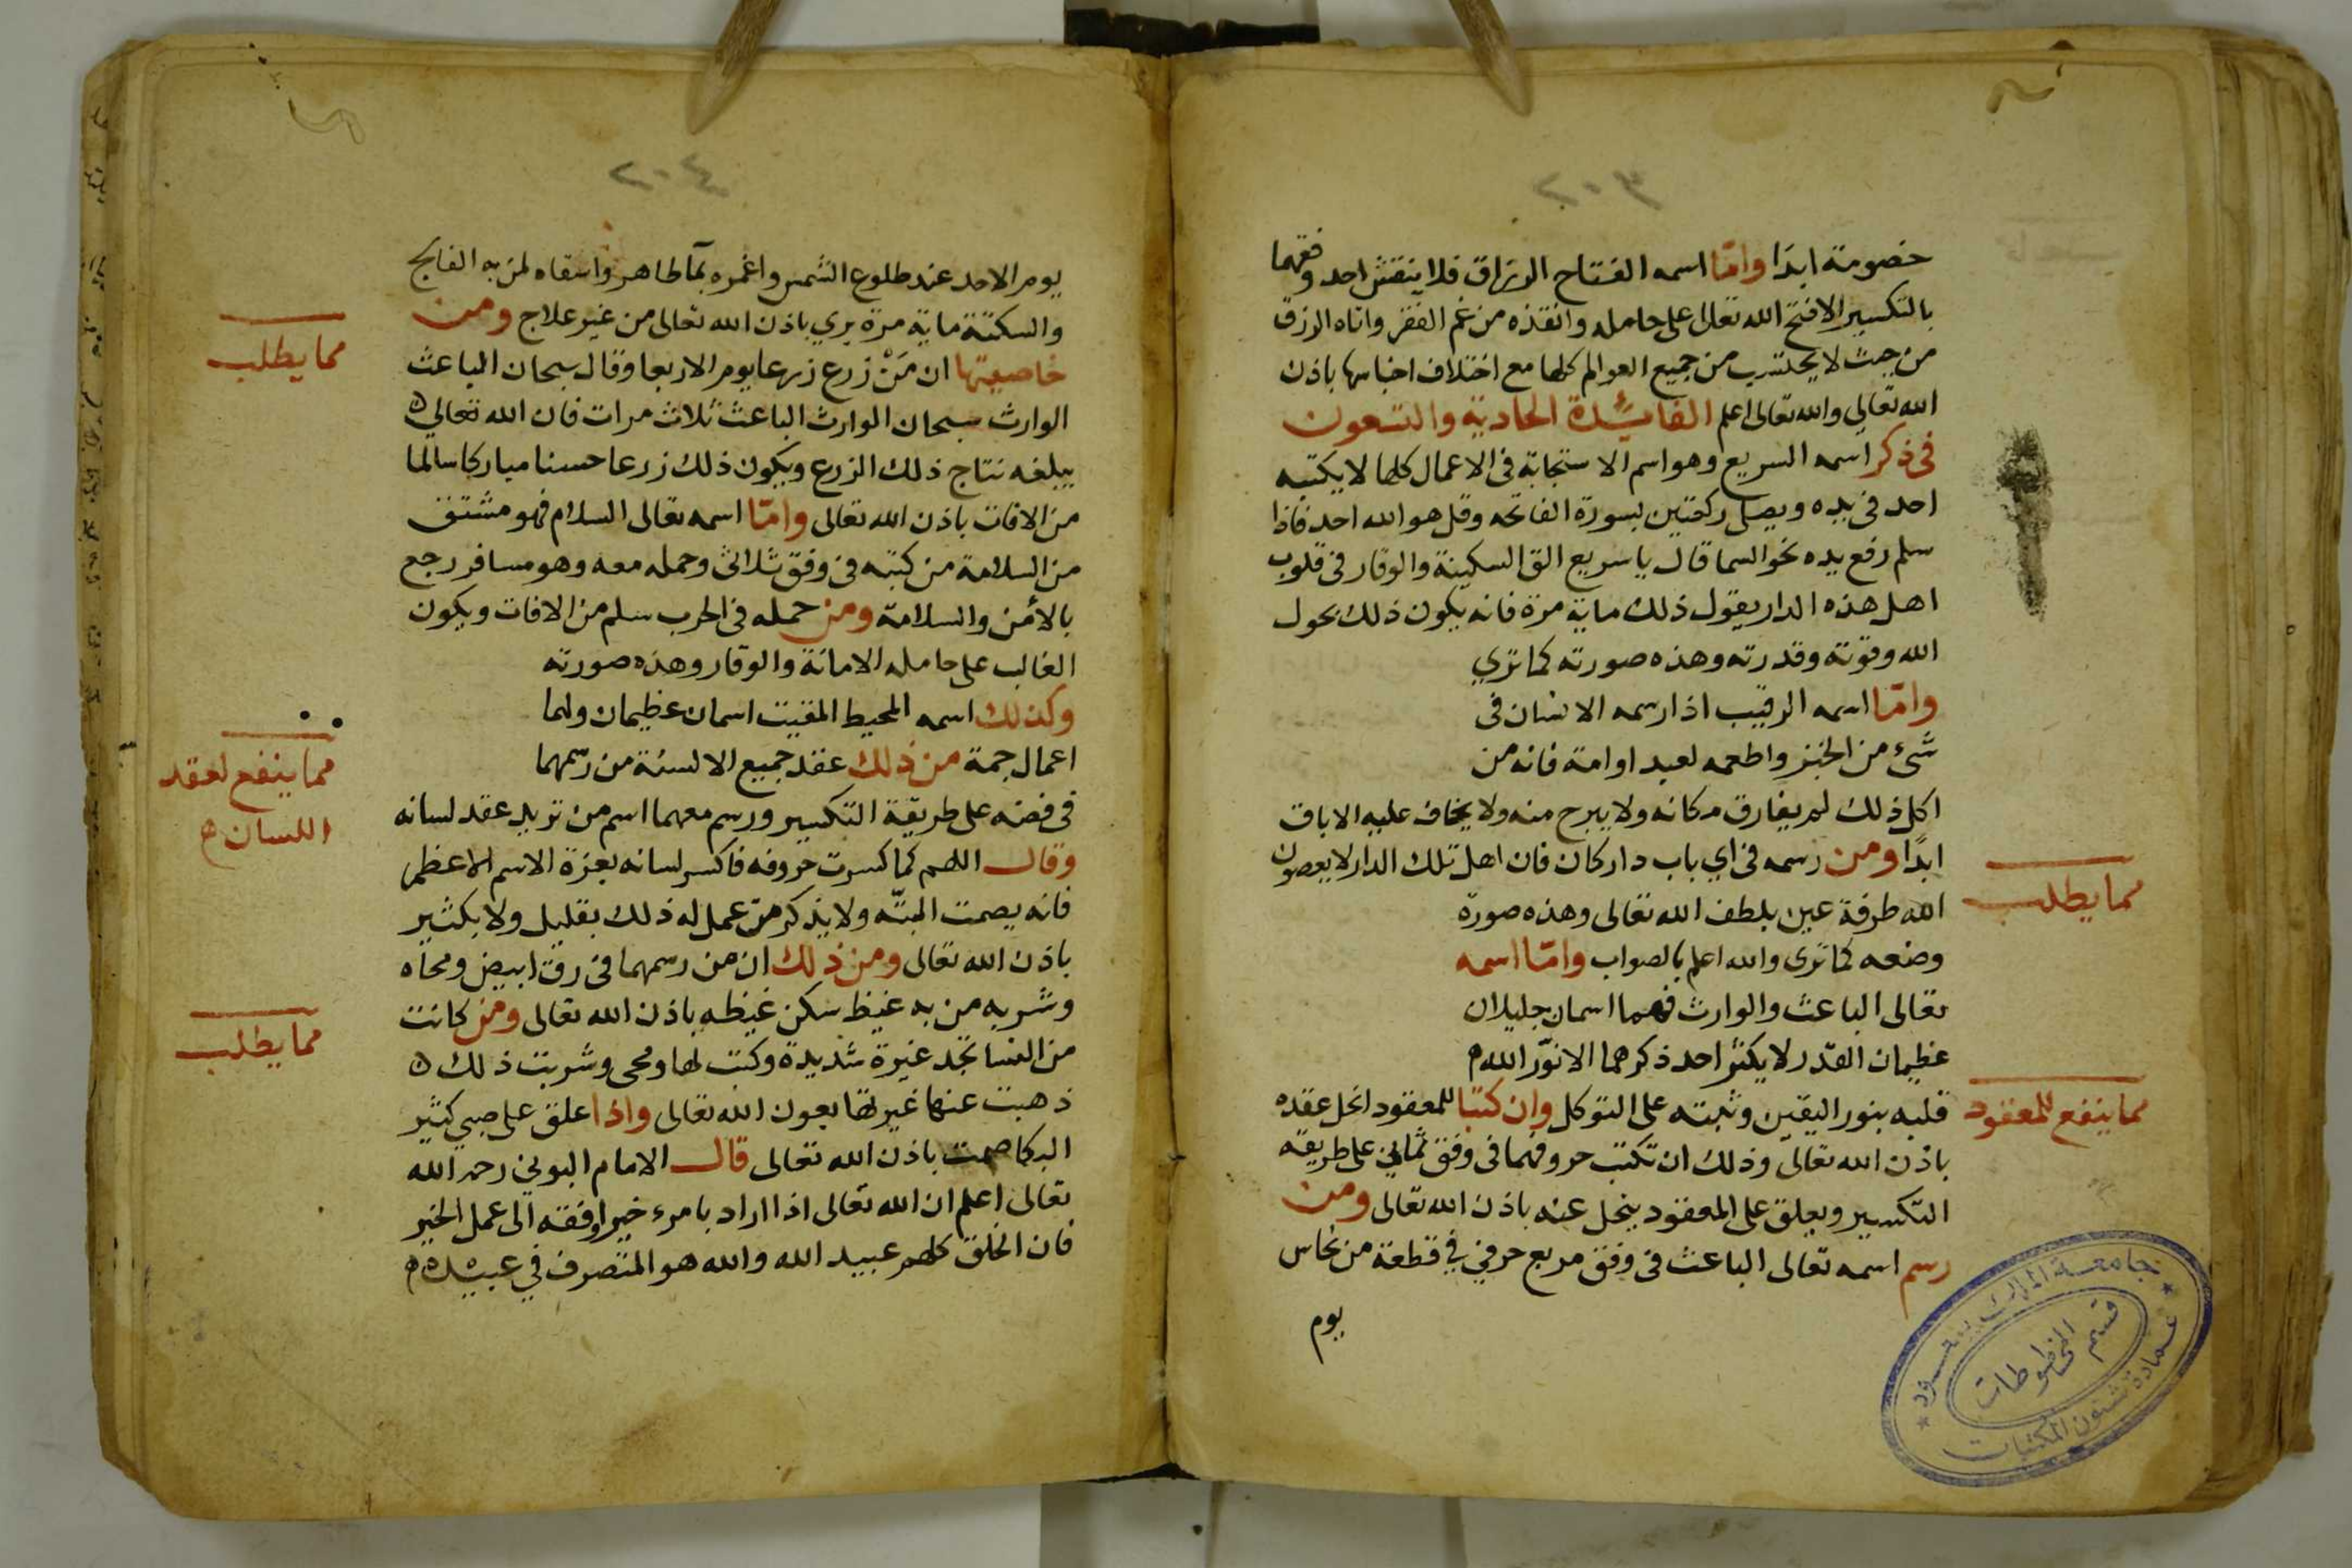 ٢٠٣
خصومة ابدا وامّا اسمه الفتاح الرزاق فلا ينقش احد وفقهما
بالتكسير الافتح الله تعالى على حامله وانقذه من غم الفقر واتاه الرزق
من حيث لا يحتسب من جميع العوالم كلها مع اختلاف اجناسها باذن
الله تعالي والله تعالى اعلم الفائدة الحادية والتسعون
فى ذكر اسمه السريع وهو اسم الاستجابة فى الاعمال كلها لا يكتبه
احد فى يده ويصلى ركعتين بسورة الفاتحه وقل هو الله احد فاذا
سلم رفع يده نحو السما قال يا سريع الق السكينة والوقار فى قلوب
اهل هذه الدار يقول ذلك ماية مرة فانه يكون ذلك بحول
الله وقوته وقدرته وهذه صورته كما تري
وامّا اسمه الرقيب اذا رسمه الانسان فى
شىء من الخبز واطعمه لعبد او امة فانه من
اكل ذلك لم يفارق مكانه ولا يبرح منه ولا يخاف عليه الاباق
ابدًا ومن رسمه فى اي باب دار كان فان اهل تلك الدار لا يعصون
مما يطلب
الله طرفة عين بلطف الله تعالى وهذه صورة
وضعه كما ترى والله اعلم بالصواب وامّا اسمه
تعالى الباعث والوارث فهما اسمان جليلان
عظيمان القدر لا يكثر احد ذكرهما الا نوّر الله
مما ينفع للمعقود
قلبه بنور اليقين وثبته على التوكل وان كتبا للمعقود انحل عقده
باذن الله تعالى وذلك ان تكتب حروفهما فى وفق ثماني على طريقة
التكسير ويعلق على المعقود ينحل عنه باذن الله تعالى ومن
رسم اسمه تعالى الباعث فى وفق مربع حرفي في قطعة من نحاس
يوم
جامعة الملك سعود
قسم المخطوطات
عمادة شئون المكتبات
٢٠٤
يوم الاحد عند طلوع الشمس واغمره بمآ طاهر واسقاه لمن به الفالج
والسكتة ماية مرة يري باذن الله تعالى من غير علاج ومن
مما يطلب
خاصيتها ان مَنْ زرع زرعا يوم الاربعا وقال سبحان الباعث
الوارث سبحان الوارث الباعث ثلاث مرات فان الله تعالي
يبلغه نتاج ذلك الزرع ويكون ذلك زرعا حسنا مباركا سالما
من الافات باذن الله تعالى وامّا اسمه تعالى السلام فهو مشتق
من السلامة من كتبه فى وفق ثلاثى وحمله معه وهو مسافر رجع
بالأمن والسلامة ومن حمله فى الحرب سلم من الافات ويكون
الغالب على حامله الامانة والوقار وهذه صورته
وكذلك اسمه المحيط المقيت اسمان عظيمان ولهما
اعمال جمة من ذلك عقد جميع الالسنة من رسمهما
مما ينفع لعقد
اللسان
فى فضه على طريقة التكسير ورسم معهما اسم من تريد عقد لسانه
وقال اللهم كما كسرت حروفه فاكسر لسانه بعزة الاسم الاعظم
فانه يصمت البتّه ولا يذكر من عمل له ذلك بقليل ولا بكثير
باذن الله تعالى ومن ذلك ان من رسمهما فى رق ابيض ومحاه
وشربه من به غيظ سكن غيظه باذن الله تعالى ومن كانت
مما يطلب
من النسا تجد غيرة شديدة وكتب لها ومحى وشربت ذلك
ذهبت عنها غيرتها بعون الله تعالى واذا علق على صبي كثير
البكا صمت باذن الله تعالى قال الامام البوني رحمه الله
تعالى اعلم ان الله تعالى اذا اراد بامرء خيرا وفقه الى عمل الخير
فان الخلق كلهم عبيد الله والله هو المتصرف في عبيده